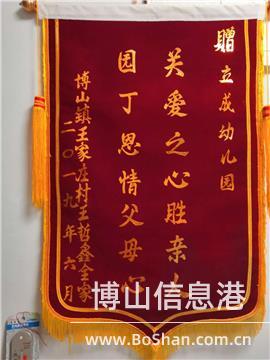 赠 立成幼儿园
关爱之心胜亲人
园丁恩情父母心
博山镇王家庄村王哲鑫全家
二〇一九年六月
博山信息港
www.BoShan.com.cn